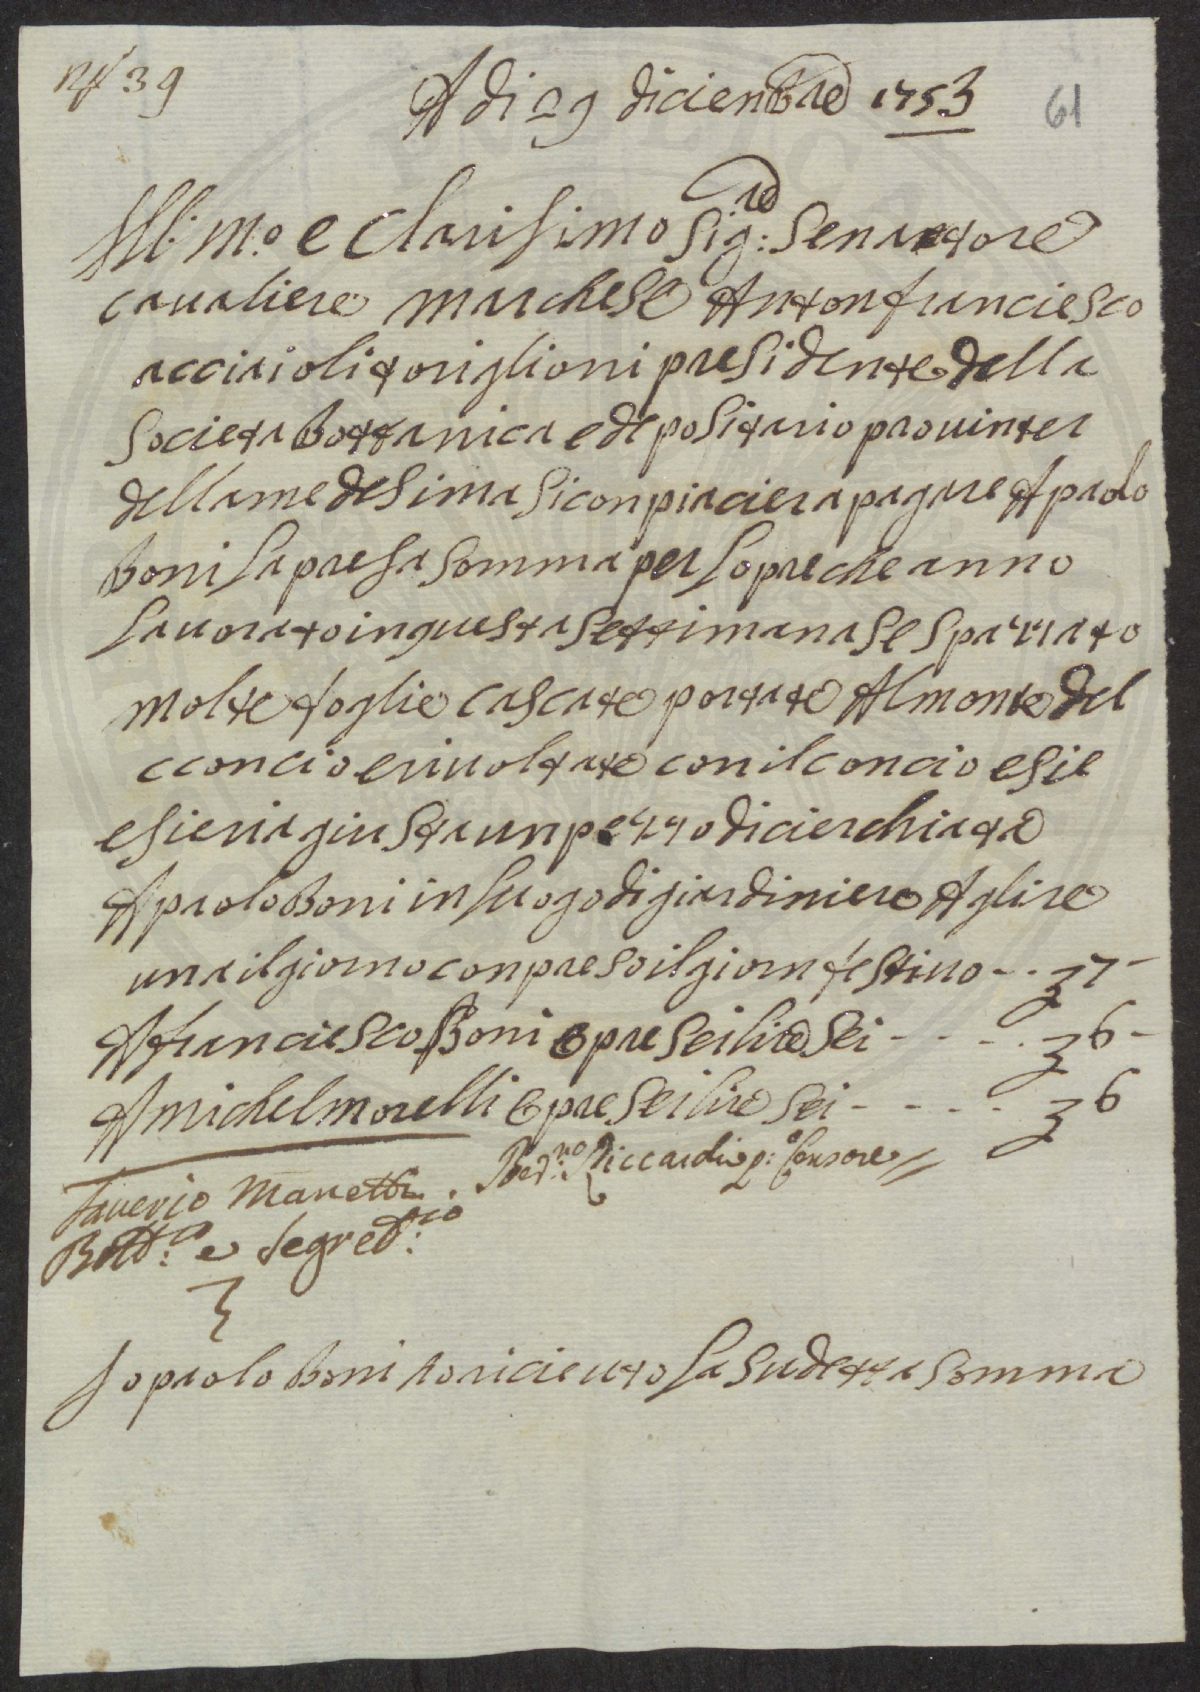 N° 39
A di 29 diciembre 1753
61
Ill:mo e Clarisimo Sig:re Senatore
cavaliere marchese Antonfranciesco
acciaioli toriglioni presidente della
Societa Bottanica e depositario provinter
della medesima si conpiaciera pagare A paolo
Boni la presa somma per lopre che anno
lavorato in questa settimana se spazzato
molte foglie cascate portate Al monte del
cconcio e rivoltate con il concio e sie
e sie riagiustaun pezzo di cierchiata
A paolo Boni in luogo di giardiniere A glire
una il giorno conpreso il giorn festivo -- 37 -
A franciesco Boni 6 pre Sei lire Sei - - - - 36 -
A michel morelli 6 pre Sei lire Sei - - - - 36
Saverio Manetti . Ber:no Riccardi p:o Censore //
Bott:co e Segret:rio
Io paolo Boni o riciеuto la sudetta somma